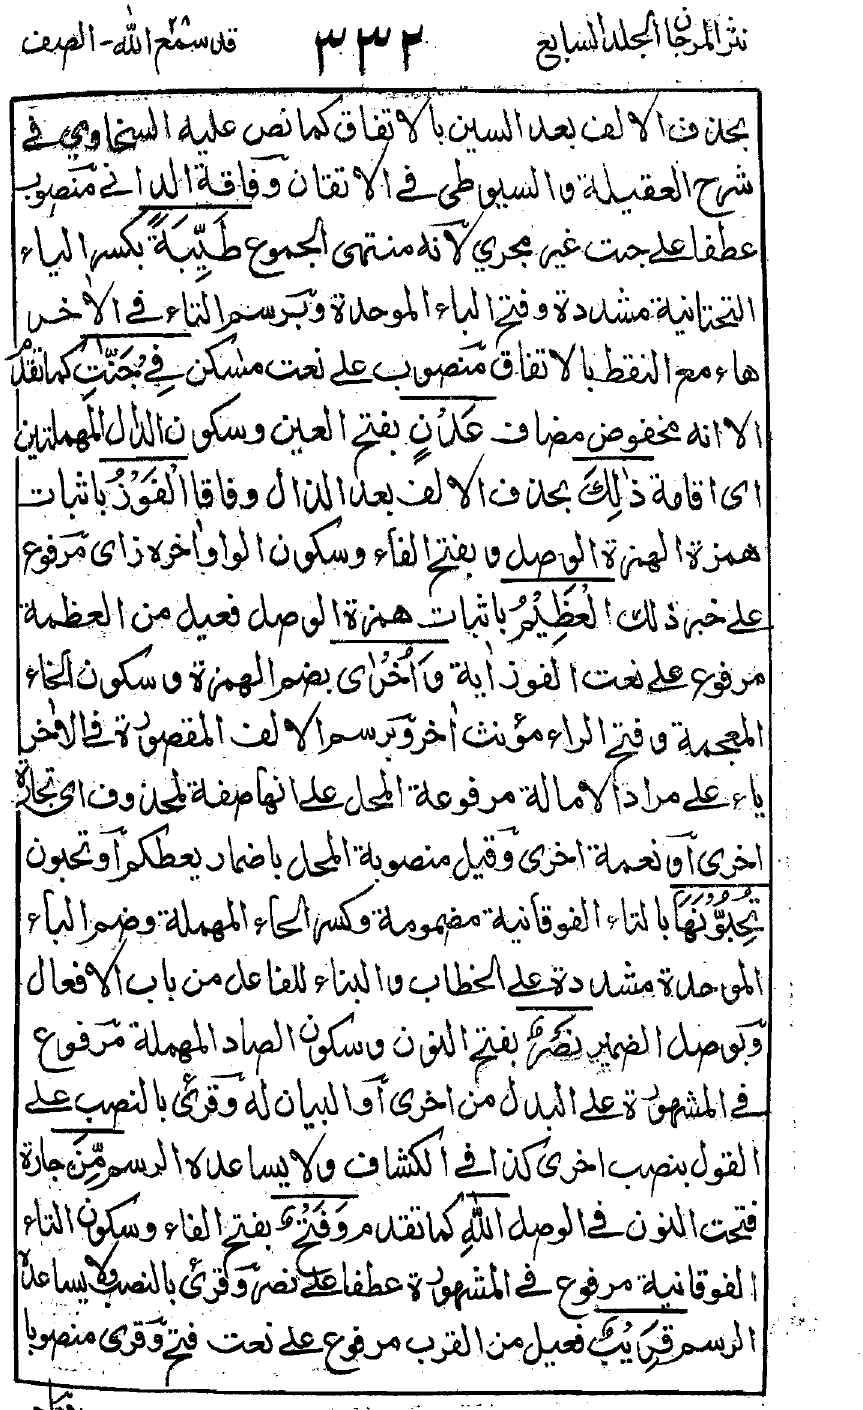 نثر المرجان الجلد السابع ٣٣٢ قد سمع الله ٢٨ - الصف
بحذف الالف بعد السين بالاتفاق كما نص عليه السخاوي في
شرح العقيلة والسيوطي في الاتقان وفاقة الداني منصوب
عطفا على جنت غير مجري لانه منتهى الجموع طَيِّبَةً بكسر الياء
التحتانية مشددة وفتح الباء الموحدة وبرسم التاء في الاخر
هاء مع النقط بالاتفاق منصوب على نعت مسكن فِي جَنّٰتِ كما تقدم
الا انه مخفوض مضاف عَدْنٍ بفتح العين وسكون الدال المهملتين
اى اقامة ذٰلِكَ بحذف الالف بعد الذال وفاقا الْفَوْزُ باثبات
همزة الهمزة الوصل و بفتح الفاء وسكون الواو اٰخره زاى مرفوع
على خبر ذلك الْعَظِيْمُ باثبات همزة الوصل فعيل من العظمة
مرفوع على نعت الفوز اٰية وَاُخْرٰى بضم الهمزة وسكون الخاء
المعجمة وفتح الراء مؤنث اٰخر وبرسم الالف المقصورة في الاٰخر
ياء على مراد الامالة مرفوعة المحل على انها صفة لمحذوف اى تجارة
اخرى او نعمة اخرى وقيل منصوبة المحل باضمار يعطكم او تحبون
تُحِبُّوْنَهَا بالتاء الفوقانية مضمومة وكسر الحاء المهملة وضم الباء
الموحدة مشددة على الخطاب والبناء للفاعل من باب الافعال
وبوصل الضمير نَصْرٌ بفتح النون وسكون الصاد المهملة مرفوع
في المشهورة على البدل من اخرى او البيان له وقرئ بالنصب على
القول بنصب اخرى كذا في الكشاف ولا يساعده الرسم مِّنَ جارة
فتحت النون في الوصل اللّٰهِ كما تقدم وَفَتْحٌ بفتح الفاء وسكون التاء
الفوقانية مرفوع في المشهورة عطفا على نصر وقرئ بالنصب ولا يساعده
الرسم قَرِيْبٌ فعيل من القرب مرفوع على نعت فتح وقرئ منصوبا